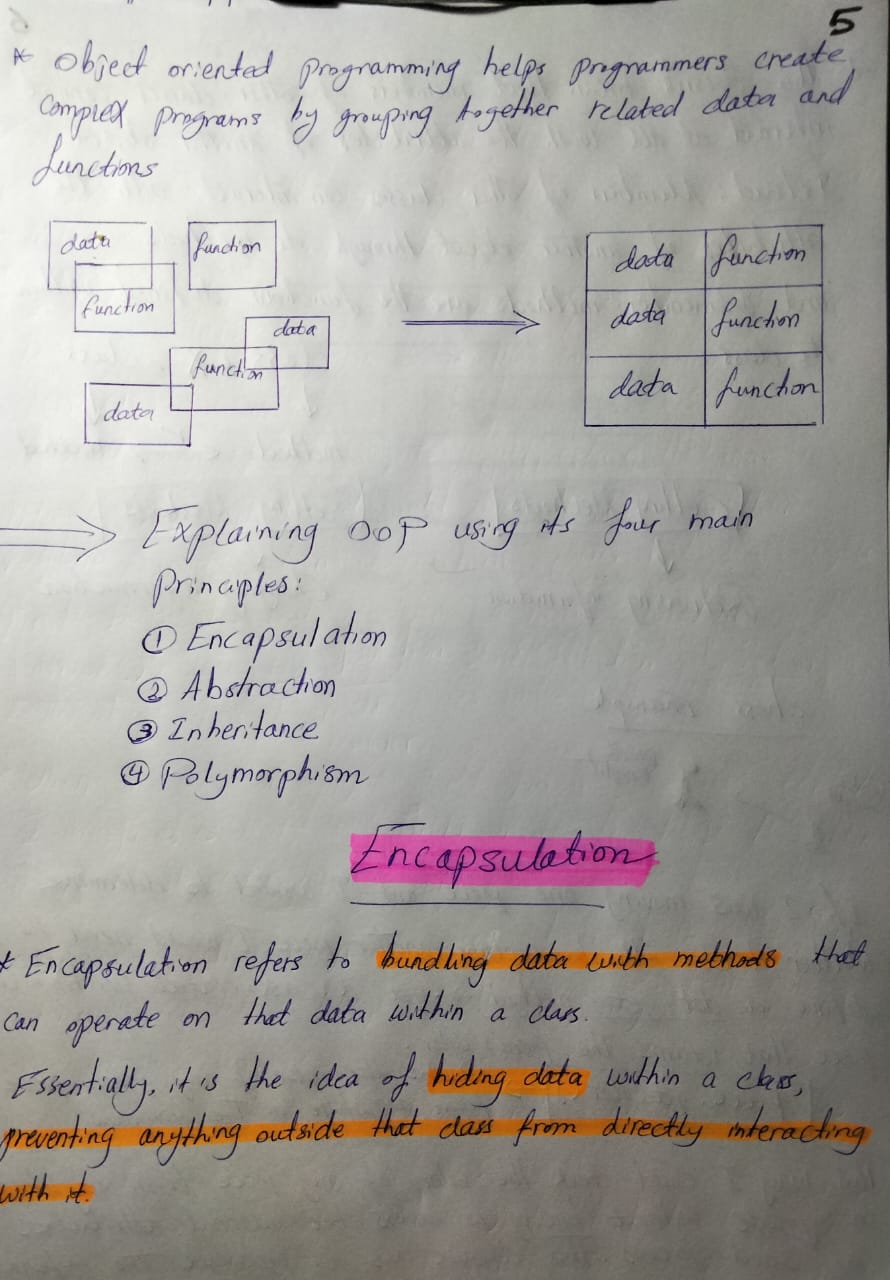 5
* Object oriented programming helps programmers create
complex programs by grouping together related data and
functions
data
function
function
data
function
data
data function
data function
data function
⇒ Explaining OOP using its four main
principles:
① Encapsulation
② Abstraction
③ Inheritance
④ Polymorphism
Encapsulation
* Encapsulation refers to bundling data with methods that
can operate on that data within a class.
Essentially, it is the idea of hiding data within a class,
preventing anything outside that class from directly interacting
with it.